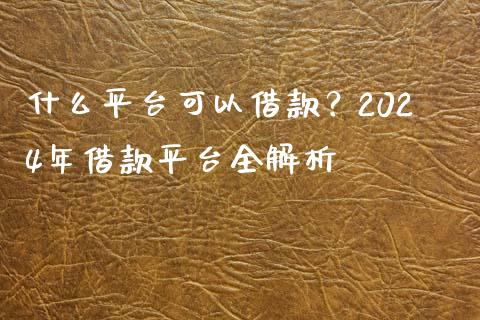 什么平台可以借款？202
4年借款平台全解析